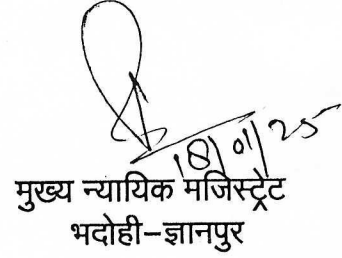 18/01/25
मुख्य न्यायिक मजिस्ट्रेट
भदोही–ज्ञानपुर